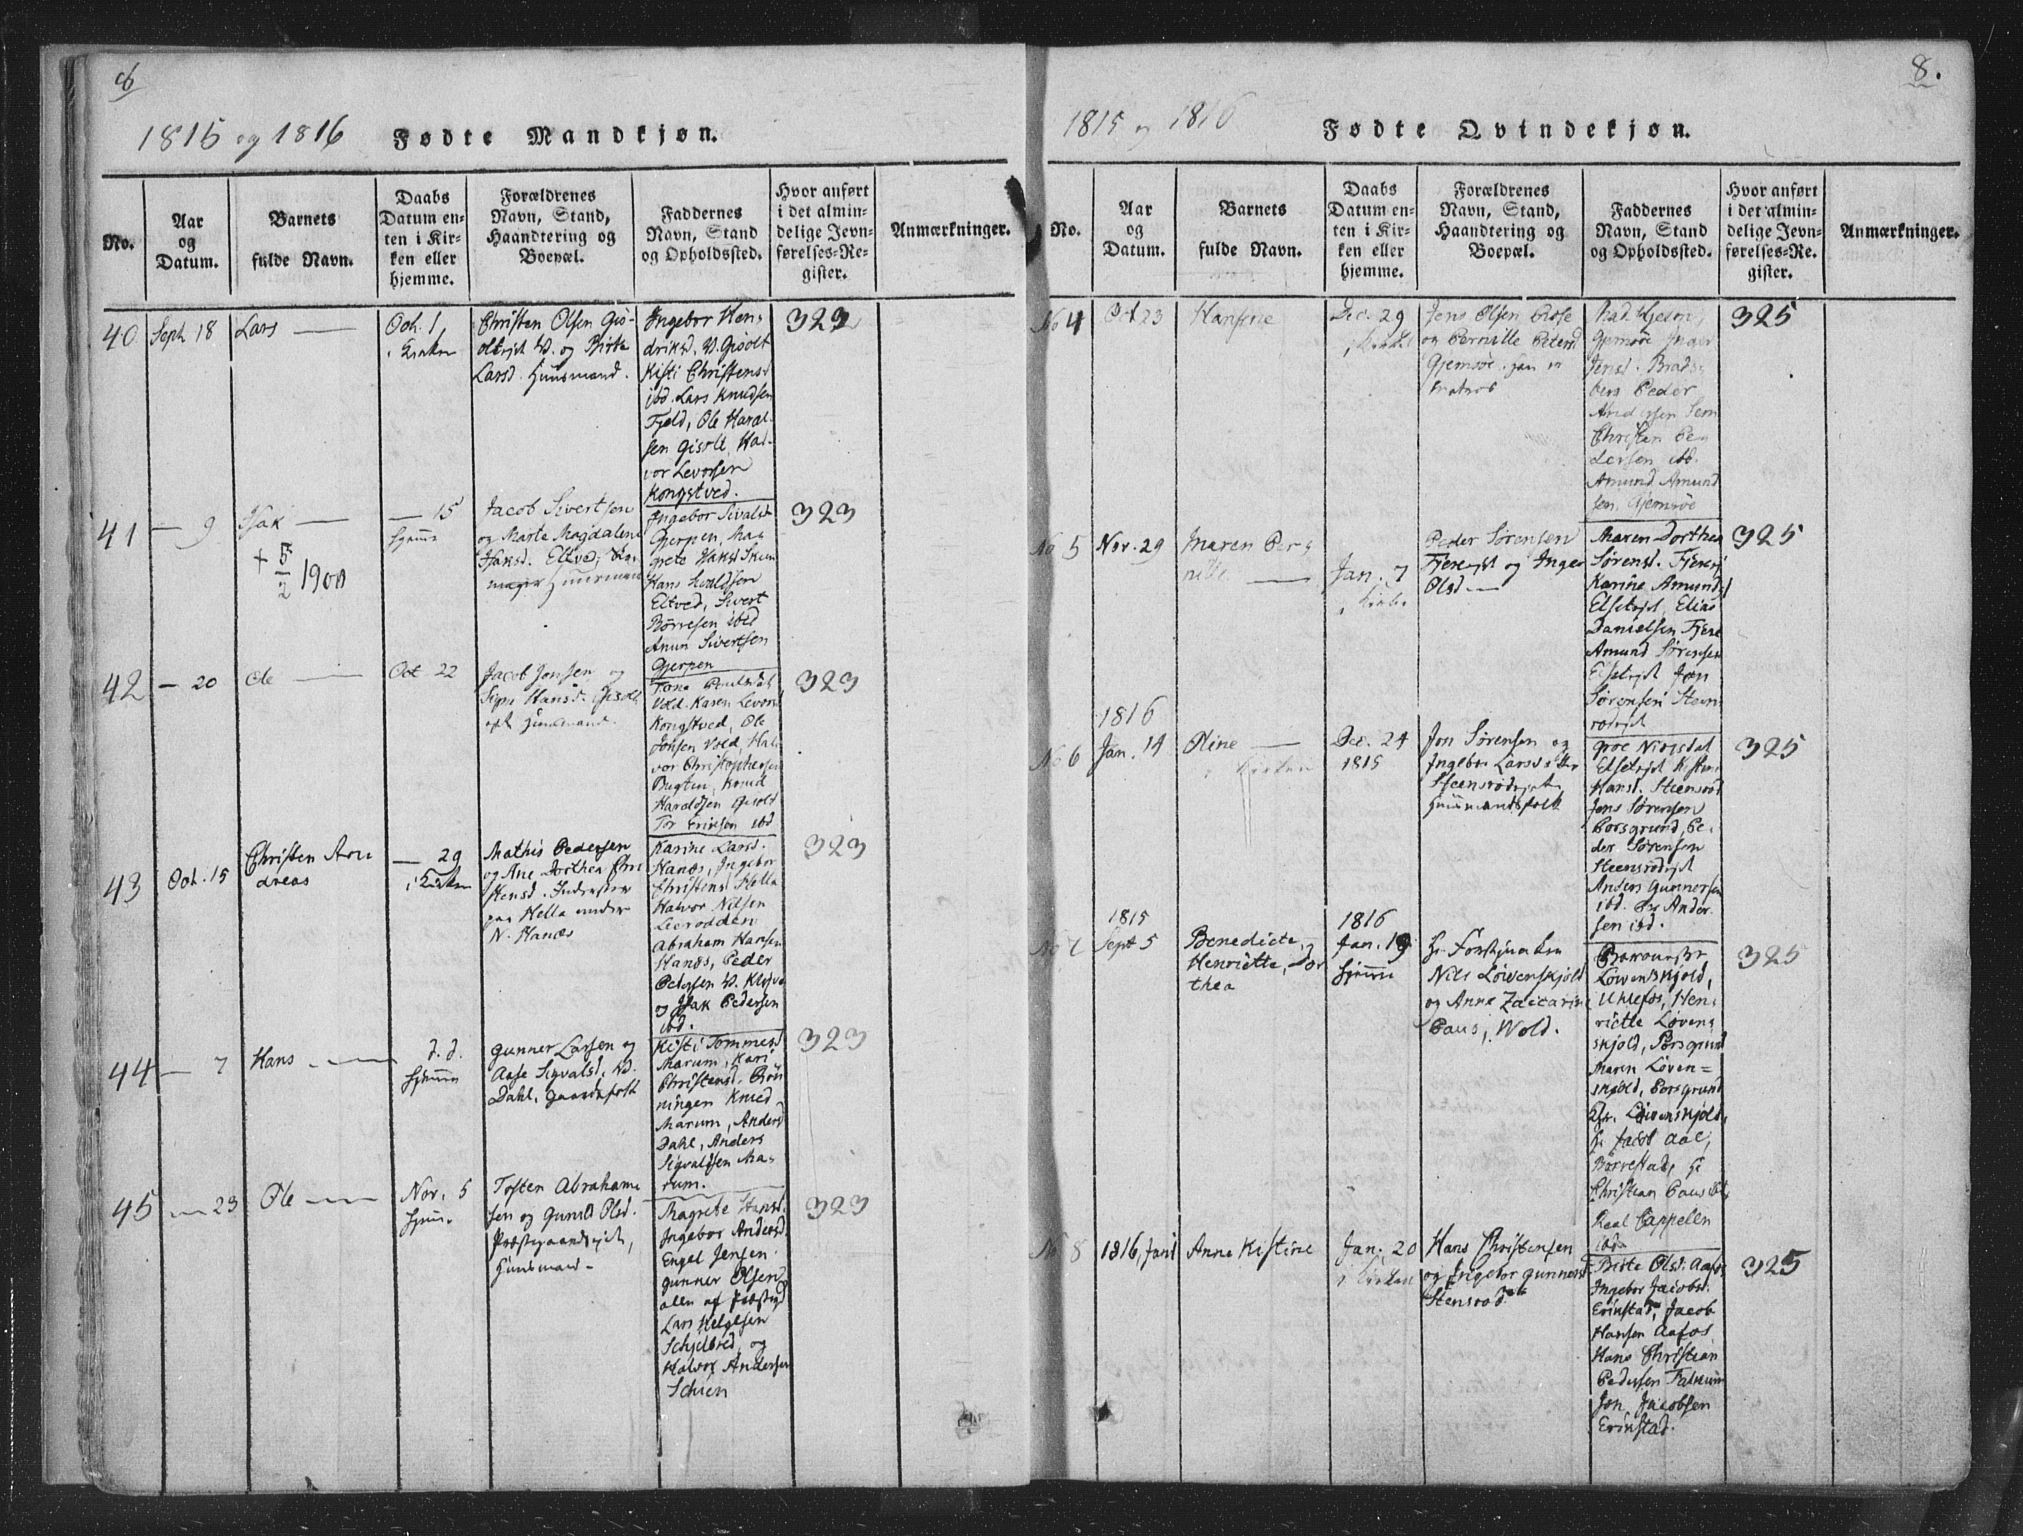 8
1815 og 1816 Fødte Mandkjøn.
No.
Aar
og
Datum.
Barnets
fulde Navn.
Daabs
Datum en-
ten i Kir-
ken eller
hjemme.
Forældrenes
Navn, Stand,
Haandtering og
Boepæl.
Faddernes
Navn, Stand
og Opholdssted.
Hvor anført
i det almin-
delige Jevn-
førelses-Re-
gister.
Anmærkninger.
40
Sept 18
Lars
Oct. 1,
i Kirken
Christen Olsen
og Birte
Larsd. Huusmand.
Ingebor Hen-
driksd. V. Gisolt
Kisti Christensd
ibd. Lars Knudsen
Fjeld, Ole Haral-
sen Gisolt, Hal-
vor Levorsen
Kongstved.
323
41
— 9
Isak
+ 5/2 1900
— 15
Hjemme
Jacob Sivertsen
og Marte Magdalene
Isaksd. Eltved,
Huusmand
Ingebor Sivalsd
Gjerpen, Ma-
grete Isaksd
Hans Sivaldsen
Eltved, Sivert
Børresen ibid
Anun Sivertsen
Gjerpen
323
42
— 20
Ole
Oct 22
Jacob Jonsen og
Hansd. Gisolt
Huusmand.
Vold. Karen Levors
Kongstved, Ole
Jonsen Vold, Hal-
vor Christophersen
Bugten, Knud
Haraldsen Gisolt
Tor Eriksen ibd
323
43
Oct. 15
Christen An-
dreas
— 29
i Kirken
Mathis Pedersen
og Ane Dorthea Chri-
stensd. Inderster
paa Hella under
N. Hanæs
Karine Larsd.
Hanæs, Ingebor
Christensd Hella
Halvor Nilsen
Lierodden
Abraham Hansen
Hanæs, Peder
Pedersen V. Klyve
og Isak Pedersen
ibd.
323
44
— 7
Hans
d. d.
Hjemme
Gunner Larsen og
Aase Sigvalsd. V.
Dahl, Gaardfolk
Kisti Tommesd
Marum, Kari
Christensd. Bøn-
ningen Knud
Marum, Anders
Dahl, Anders
Sigvaldsen Ma-
rum.
323
45
— 23
Ole
Nov. 5
Hjem.
Tosten Abraham-
sen og Gunild Olsd.
Præstegaardsejet,
Huusmand
Magrete Hansd.
Ingebor Andersd.
Engel Jensen.
Gunner Olsen
alle af Præsteg
Lars Helgesen
Schjelbred, og
Halvor Andersen
Schien
323
8.
1815 og 1816 Fødte Qvindekjøn.
No.
Aar
og
Datum.
Barnets
fulde Navn.
Daabs
Datum en-
ten i Kir-
ken eller
hjemme.
Forældrenes
Navn, Stand,
Haandtering og
Boepæl.
Faddernes
Navn, Stand
og Opholdssted.
Hvor anført
i det almin-
delige Jevn-
førelses-Re-
gister.
Anmærkninger.
No 4
Oct 23
Hansine
Dec. 29
i Kirken
Jens Olsen
og Pernille Petersd
Gjemsøe. han er
Matros
Mad.
Gjemsøe Inger
Jensd. Brads-
berg Peder
Andersen
Christen Pe-
dersen ibd.
Amund Amund
sen, Gjemsøe
325
No 5
Nov. 29
Maren Per-
nille
Jan. 7
i Kirke
Peder Sørensen
og Inger
Olsd
Maren Dorthea
Sørensd.
Karine Amundsd
Elsetejet, Elias
Danielsen
Amund Sørensen
Elsetejet Jon
Sørensen Steen
rødejet
325
No 6
1816
Jan. 14
Oline
i Kirken
Dec. 24
1815
Jon Sørensen og
Ingebor Larsdatter
Steensrødejet
Huusmandsfolk
Elsetejet Kisten
Hansd. Steensrød
Jens Sørensen
Porsgrund, Pe-
der Sørensen
Steensrødejet
Anders Gunnersen
ibd. Ander-
sen ibd.
325
No 7
1815
Sept 5
Benedicte,
Henriette, Dor
thea
1816
Jan. 19
Hjemme
Hr. Forstjunker
Nils Løvenskjold
og Anna Zaccarine
Paus, Wold.
Baronesse
Løvenskjold,
Uhlefos, Hen-
riette Løven-
skjold, Porsgrund
Maren Løven=
skjold, Porsgrund
Hr. Løvenskjold,
Hr Jacob Aal,
Borrestad, Hr
Christian Paus ibd
Real Cappelen
ibd
325
No 8
1816, Jan 1
Anne Kistine
Jan. 20
i Kirken
Hans Christensen
og Ingebor Gunnersd
Stensrød
Birte Olsd. Aafos
Ingebor Jacobsd.
Erikstad, Jacob
Hansen Aafos
Hans Christian
Pedersen Falkum
Jon Jacobsen
Erikstad.
325